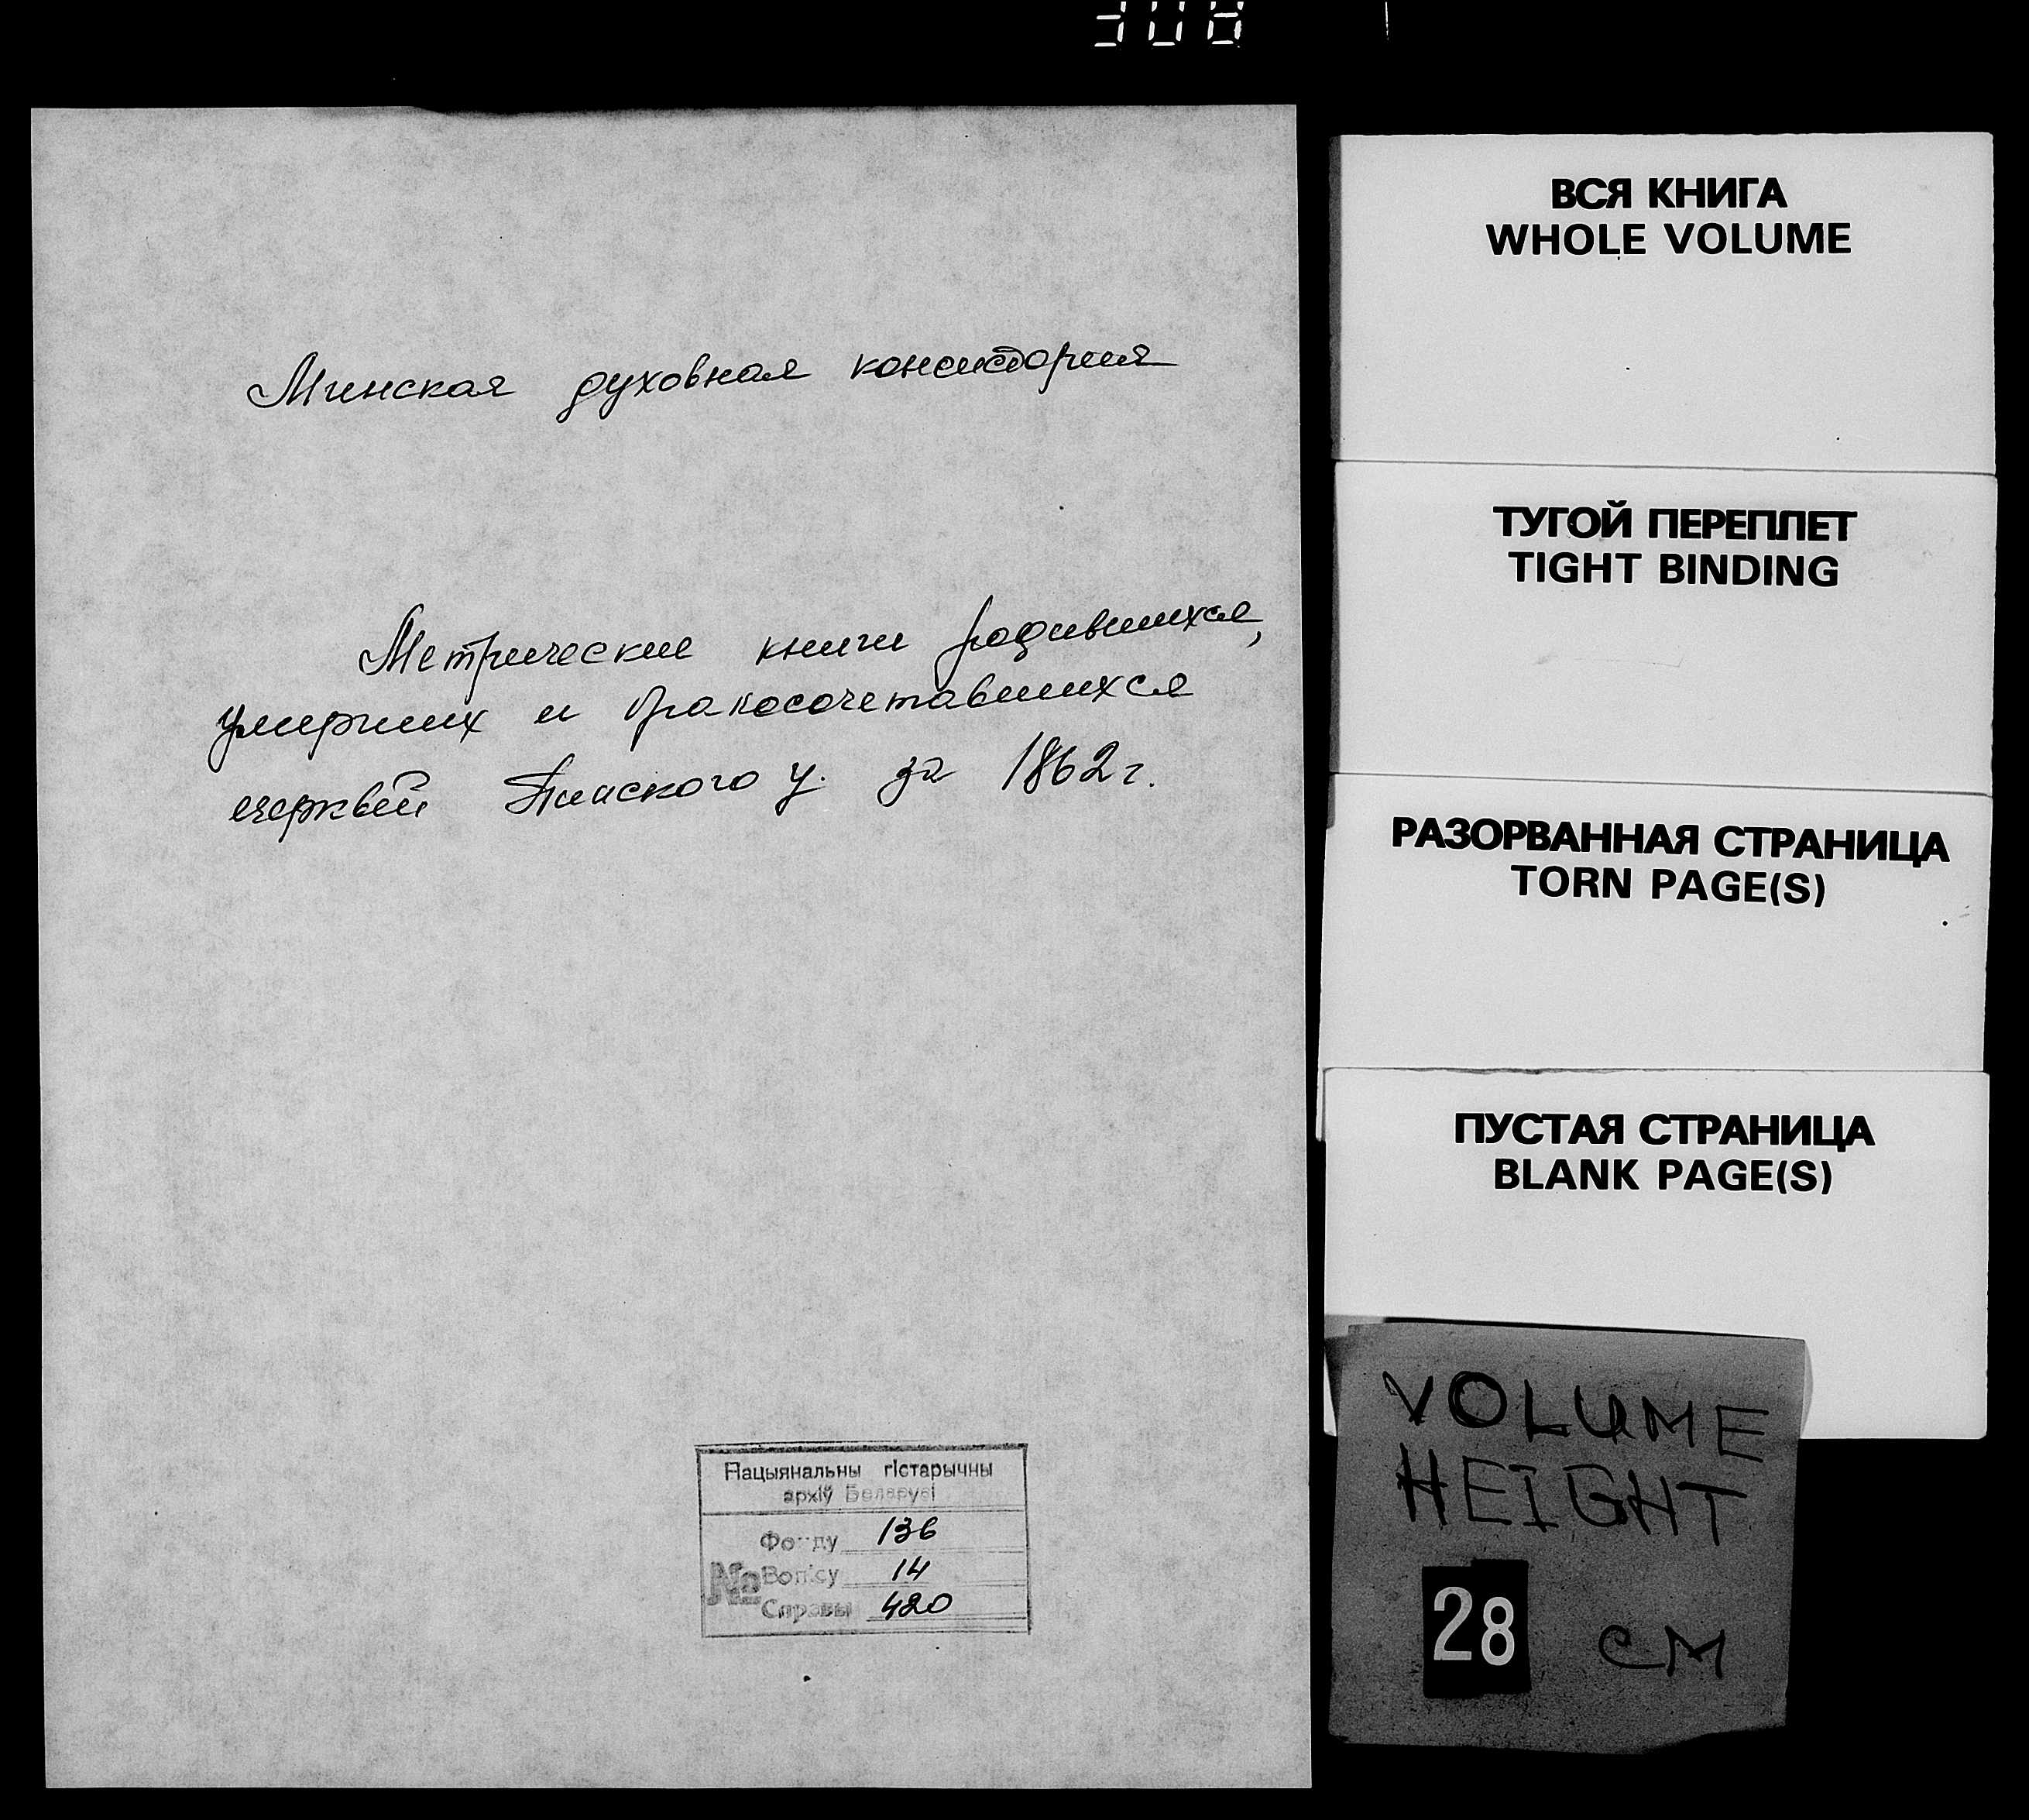 Минская духовная консистория
Метрические книги родившихся,
умерших и бракосочетавшихся
церквей Пинского у. за 1862 г.
Нацыянальны гістарычны
архіў Беларусі
Фонду 136
№ Вопісу 14
Справы 420
ВСЯ КНИГА
WHOLE VOLUME
ТУГОЙ ПЕРЕПЛЕТ
TIGHT BINDING
РАЗОРВАННАЯ СТРАНИЦА
TORN PAGE(S)
ПУСТАЯ СТРАНИЦА
BLANK PAGE(S)
VOLUME
HEIGHT
28 CM